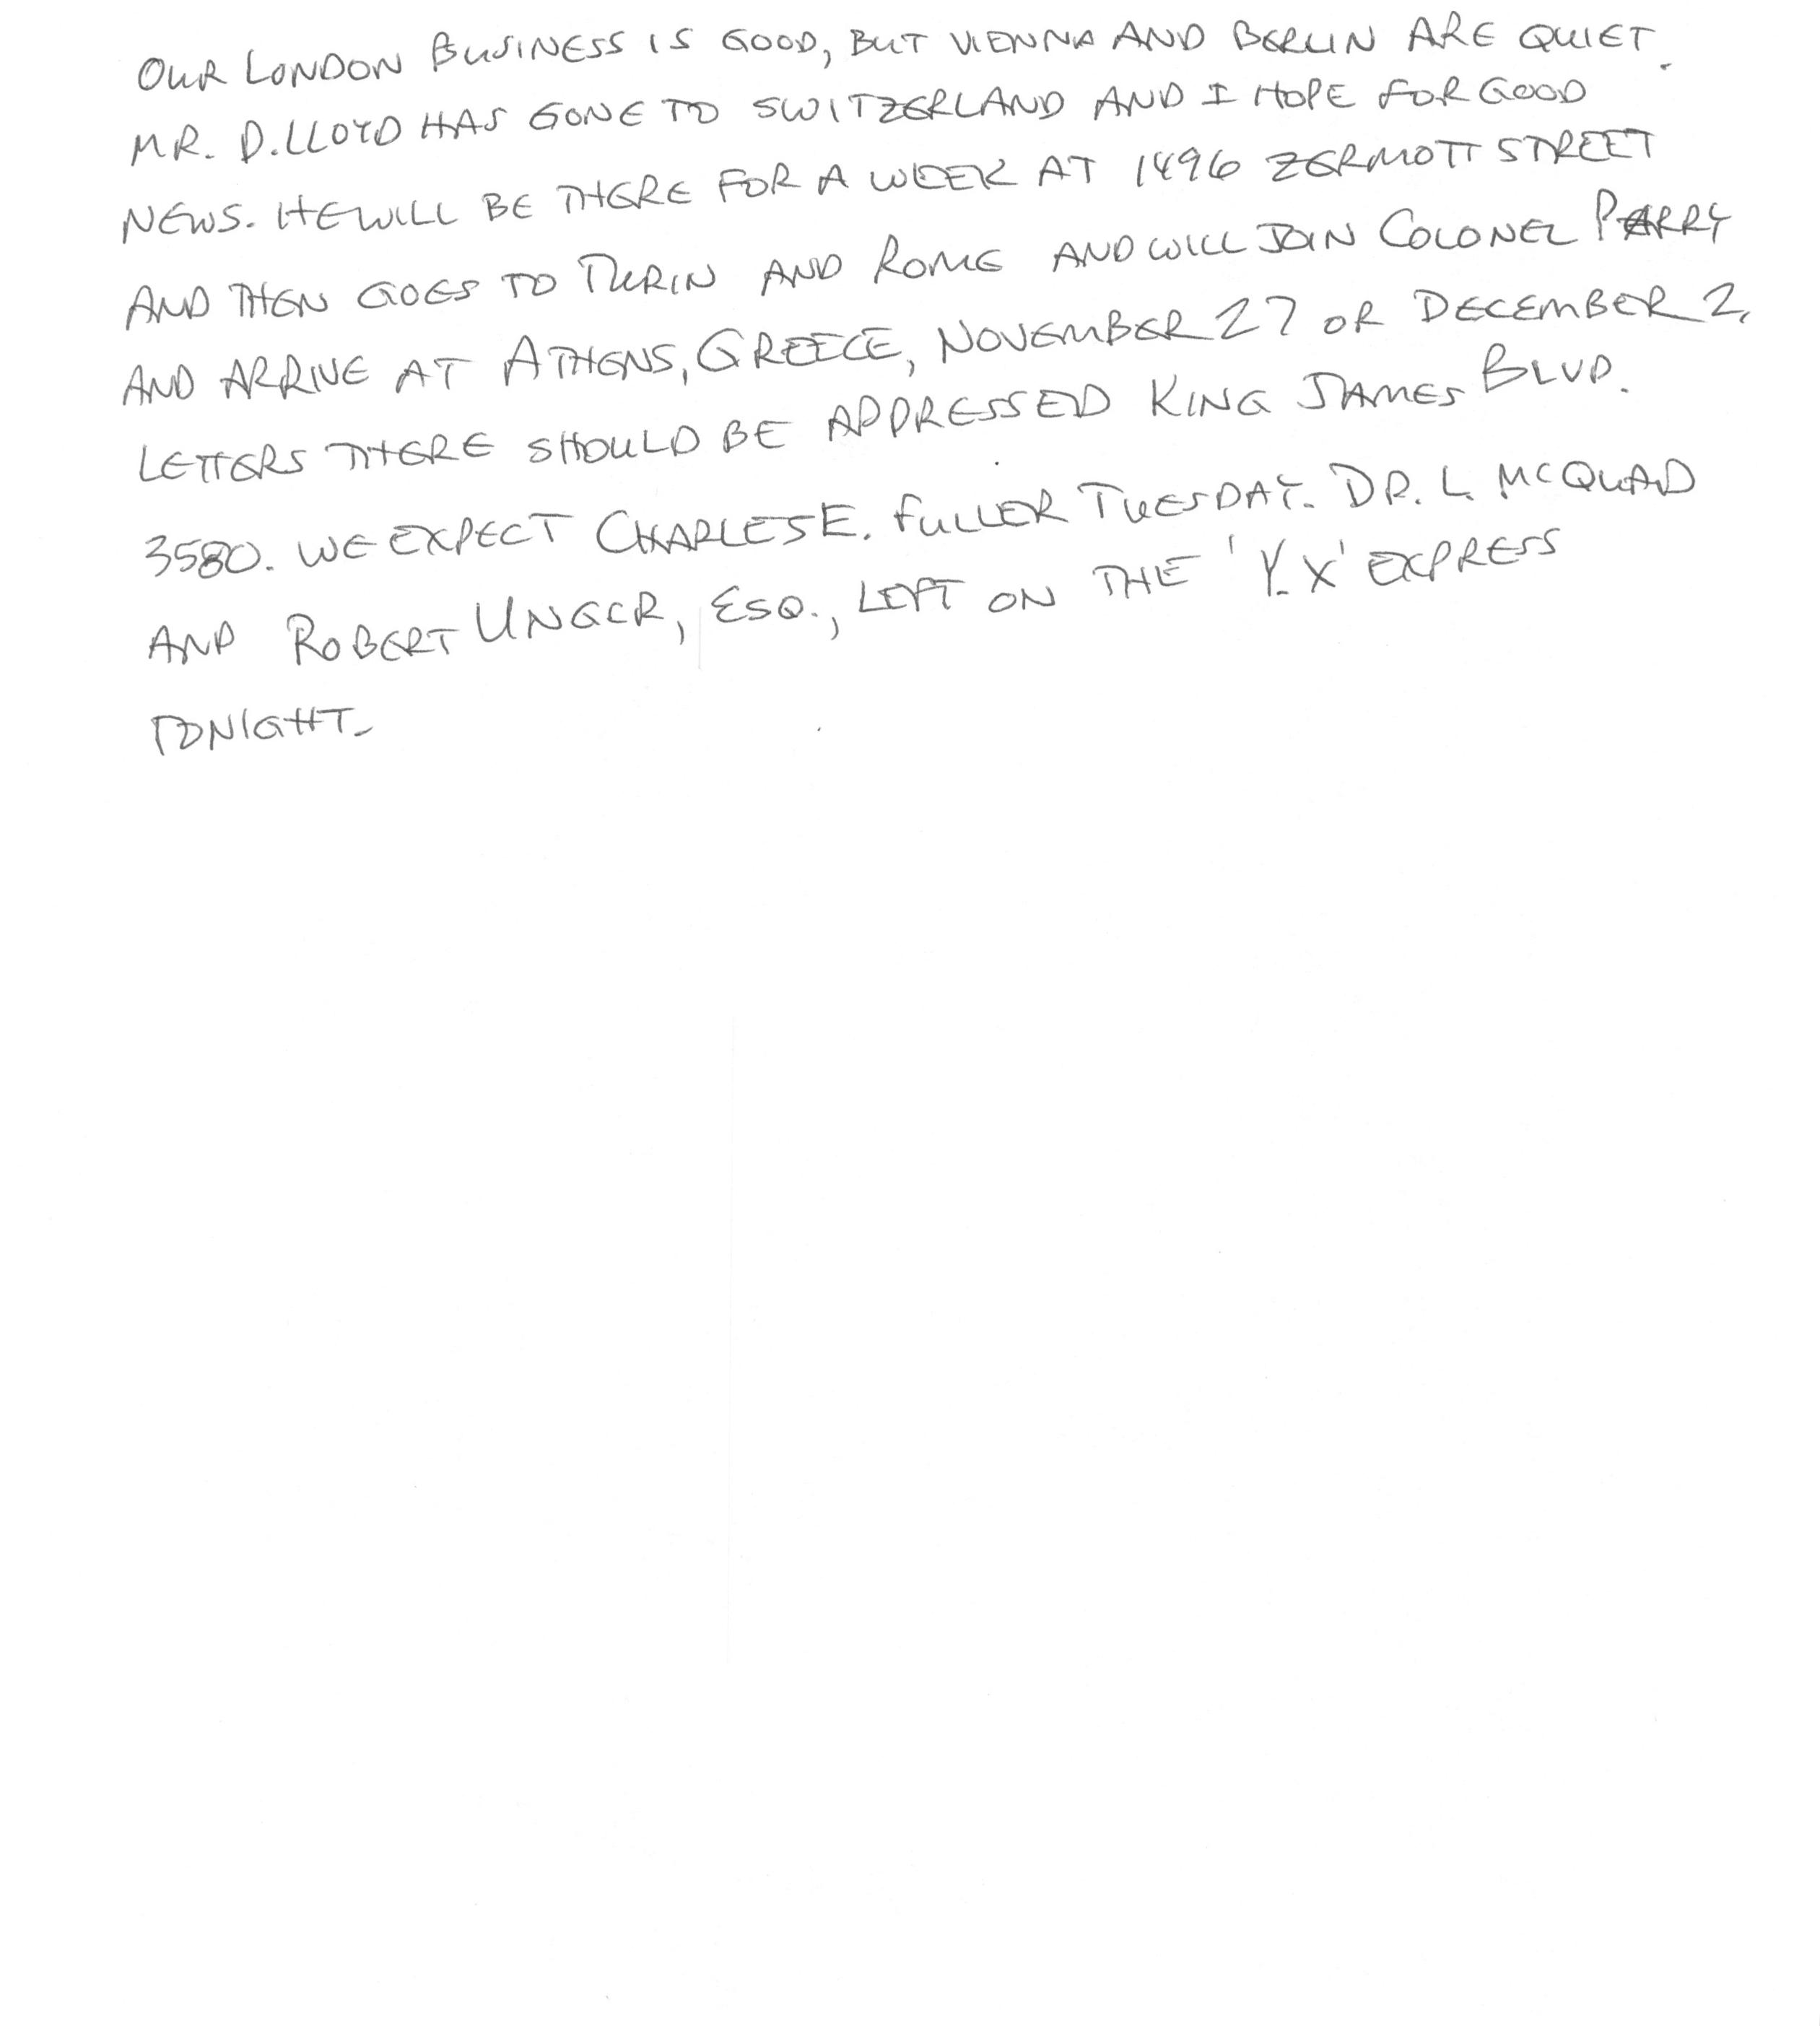 OUR LONDON BUSINESS IS GOOD, BUT VIENNA AND BERLIN ARE QUIET.
MR. D. LLOYD HAS GONE TO SWITZERLAND AND I HOPE FOR GOOD
NEWS. HE WILL BE THERE FOR A WEEK AT 1496 ZERMOTT STREET
AND THEN GOES TO TURIN AND ROME AND WILL JOIN COLONEL PARRY
AND ARRIVE AT ATHENS, GREECE, NOVEMBER 27 OR DECEMBER 2.
LETTERS THERE SHOULD BE ADDRESSED KING JAMES BLVD.
3580. WE EXPECT CHARLES E. FULLER TUESDAY. DR. L. MCQUAD
AND ROBERT UNGER, ESQ., LEFT ON THE 'Y.X' EXPRESS
TONIGHT.